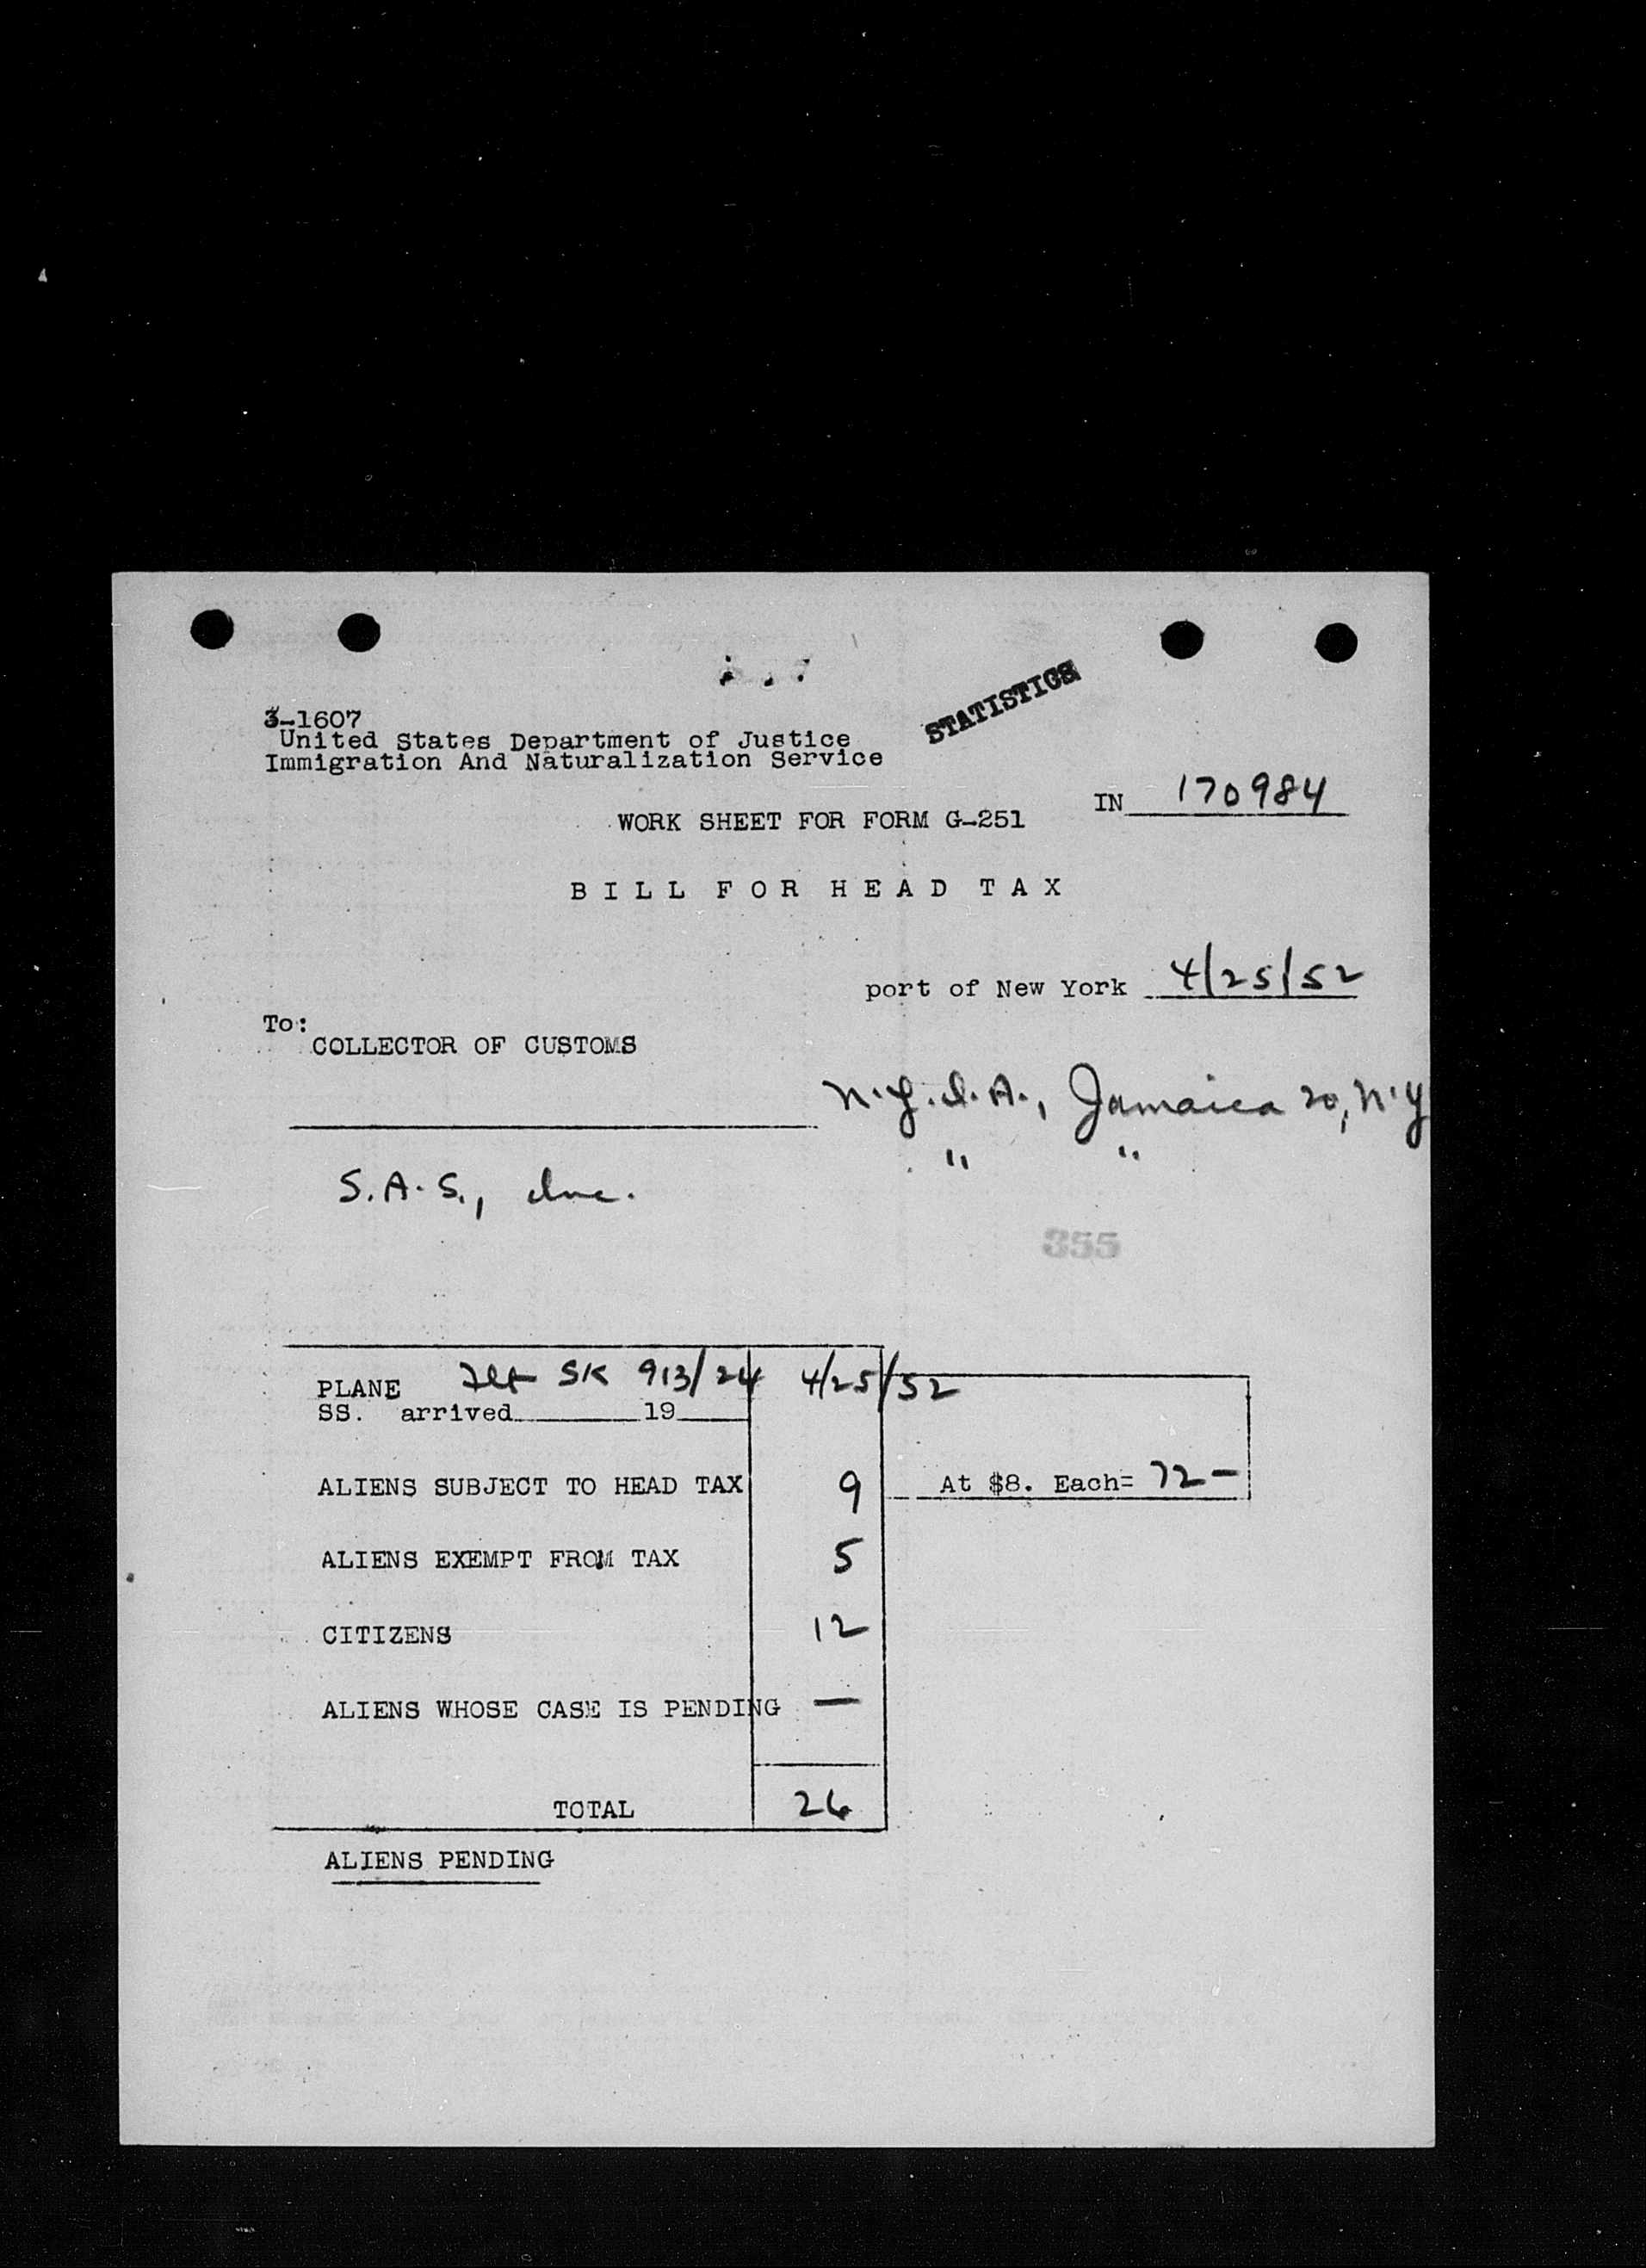 STATISTICS
3-1607
United States Department of Justice
Immigration And Naturalization Service
IN 170984
WORK SHEET FOR FORM G-251
BILL FOR HEAD TAX
port of New York 4/25/52
To:
COLLECTOR OF CUSTOMS
N.Y.I.A., Jamaica 20, N.Y
" "
S.A.S., Inc.
355
PLANE Flt SK 913/24 4/25/52
SS. arrived 19
ALIENS SUBJECT TO HEAD TAX 9 At $8. Each= 72-
ALIENS EXEMPT FROM TAX 5
CITIZENS 12
ALIENS WHOSE CASE IS PENDING —
TOTAL 26
ALIENS PENDING